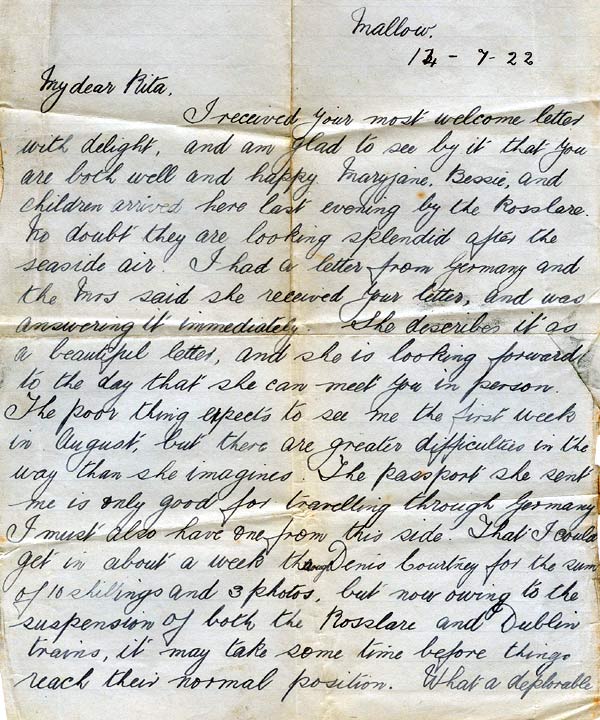 Mallow.
14 - 7 - 22
My dear Rita,
I received your most welcome letter
with delight, and am glad to see by it that you
are both well and happy Maryjane, Bessie, and
children arrived here last evening by the Rosslare.
No doubt they are looking splendid after the
seaside air. I had a letter from Germany and
the Mrs said she received your letter, and was
answering it immediately. She describes it as
a beautiful letter, and she is looking forward
to the day that she can meet you in person.
The poor thing expects to see me the first week
in August, but there are greater difficulties in the
way than she imagines. The passport she sent
me is only good for travelling through Germany
I must also have one from this side. That I could
get in about a week through Denis Courtney for the sum
of 10 shillings and 3 photos, but now owing to the
suspension of both the Rosslare and Dublin
trains, it may take some time before things
reach their normal position. What a deplorable